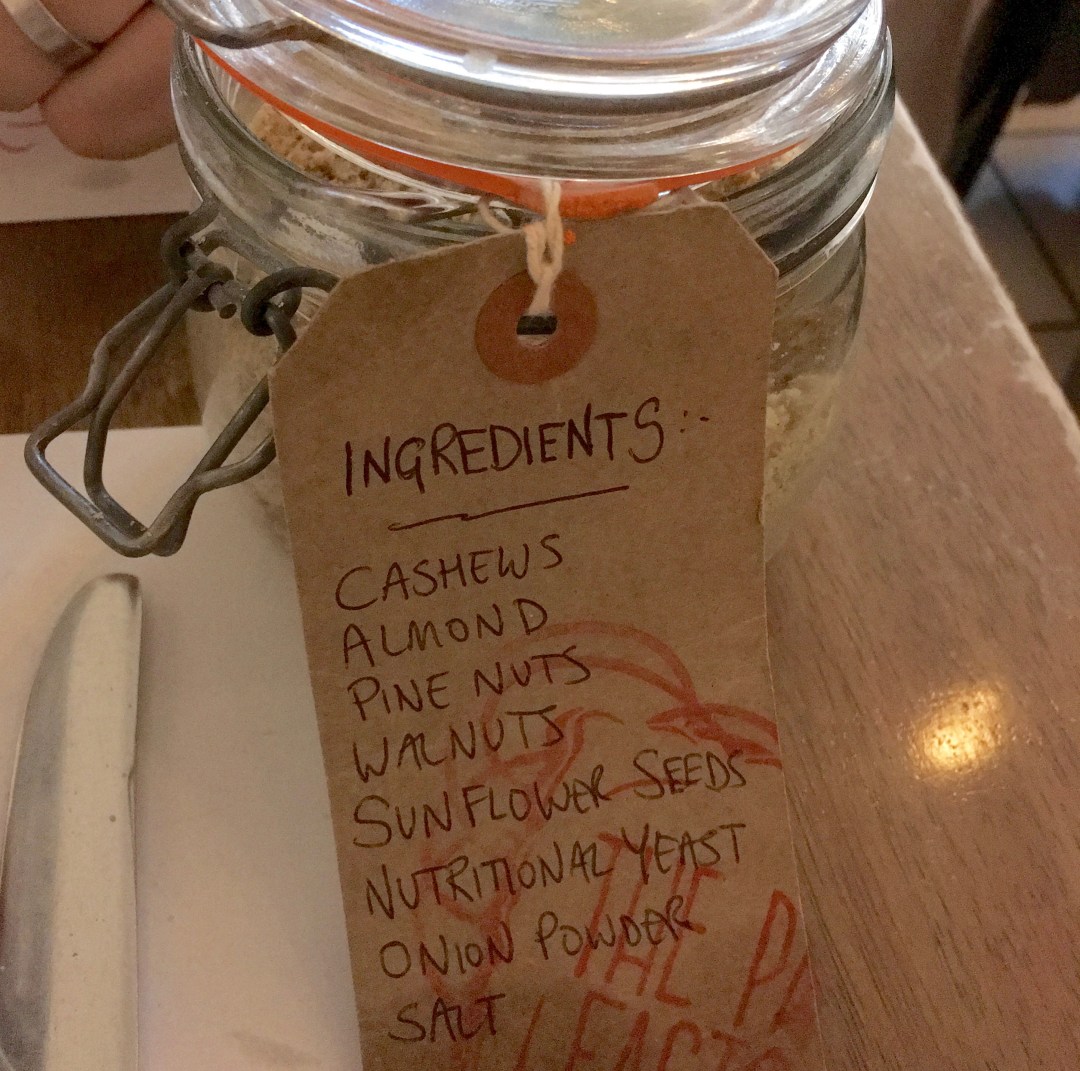 INGREDIENTS:-
CASHEWS
ALMOND
PINE NUTS
WALNUTS
SUNFLOWER SEEDS
NUTRITIONAL YEAST
ONION POWDER
SALT
THE